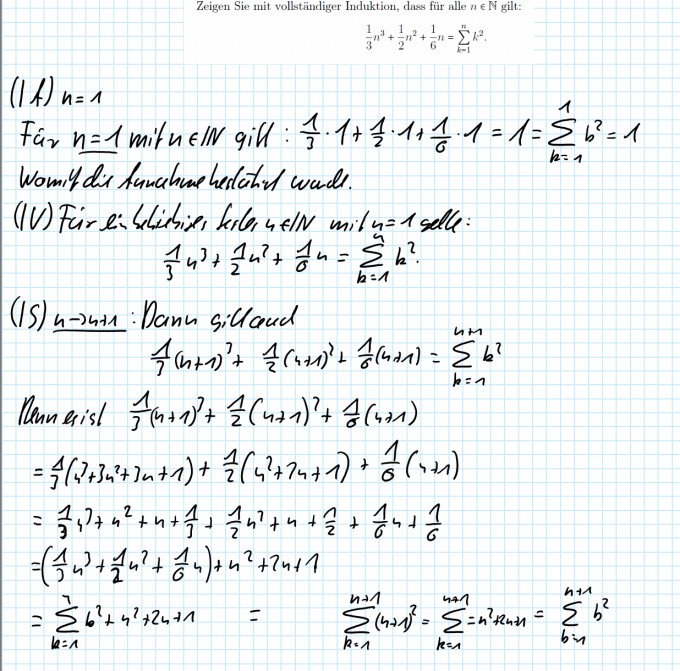 Zeigen Sie mit vollständiger Induktion, dass für alle n ∈ ℕ gilt:
1/3 n³ + 1/2 n² + 1/6 n = ∑_{k=1}^{n} k².
(IA) n=1
Für n=1 mit n∈ℕ gilt: 1/3 · 1 + 1/2 · 1 + 1/6 · 1 = 1 = ∑_{k=1}^{1} k² = 1
Womit die Annahme bestätigt wurde.
(IV) Für ein beliebiges, festes n∈ℕ mit n=1 gelte:
1/3 n³ + 1/2 n² + 1/6 n = ∑_{k=1}^{n} k².
(IS) n→n+1: Dann gilt auch
1/3 (n+1)³ + 1/2 (n+1)² + 1/6 (n+1) = ∑_{k=1}^{n+1} k²
Denn es ist 1/3 (n+1)³ + 1/2 (n+1)² + 1/6 (n+1)
= 1/3 (n³+3n²+3n+1) + 1/2 (n²+2n+1) + 1/6 (n+1)
= 1/3 n³ + n² + n + 1/3 + 1/2 n² + n + 1/2 + 1/6 n + 1/6
= (1/3 n³ + 1/2 n² + 1/6 n) + n² + 2n + 1
= ∑_{k=1}^{n} k² + n² + 2n + 1 = ∑_{k=1}^{n+1} (n+1)² = ∑_{k=1}^{n+1} = n²+2n+1 = ∑_{k=1}^{n+1} k²